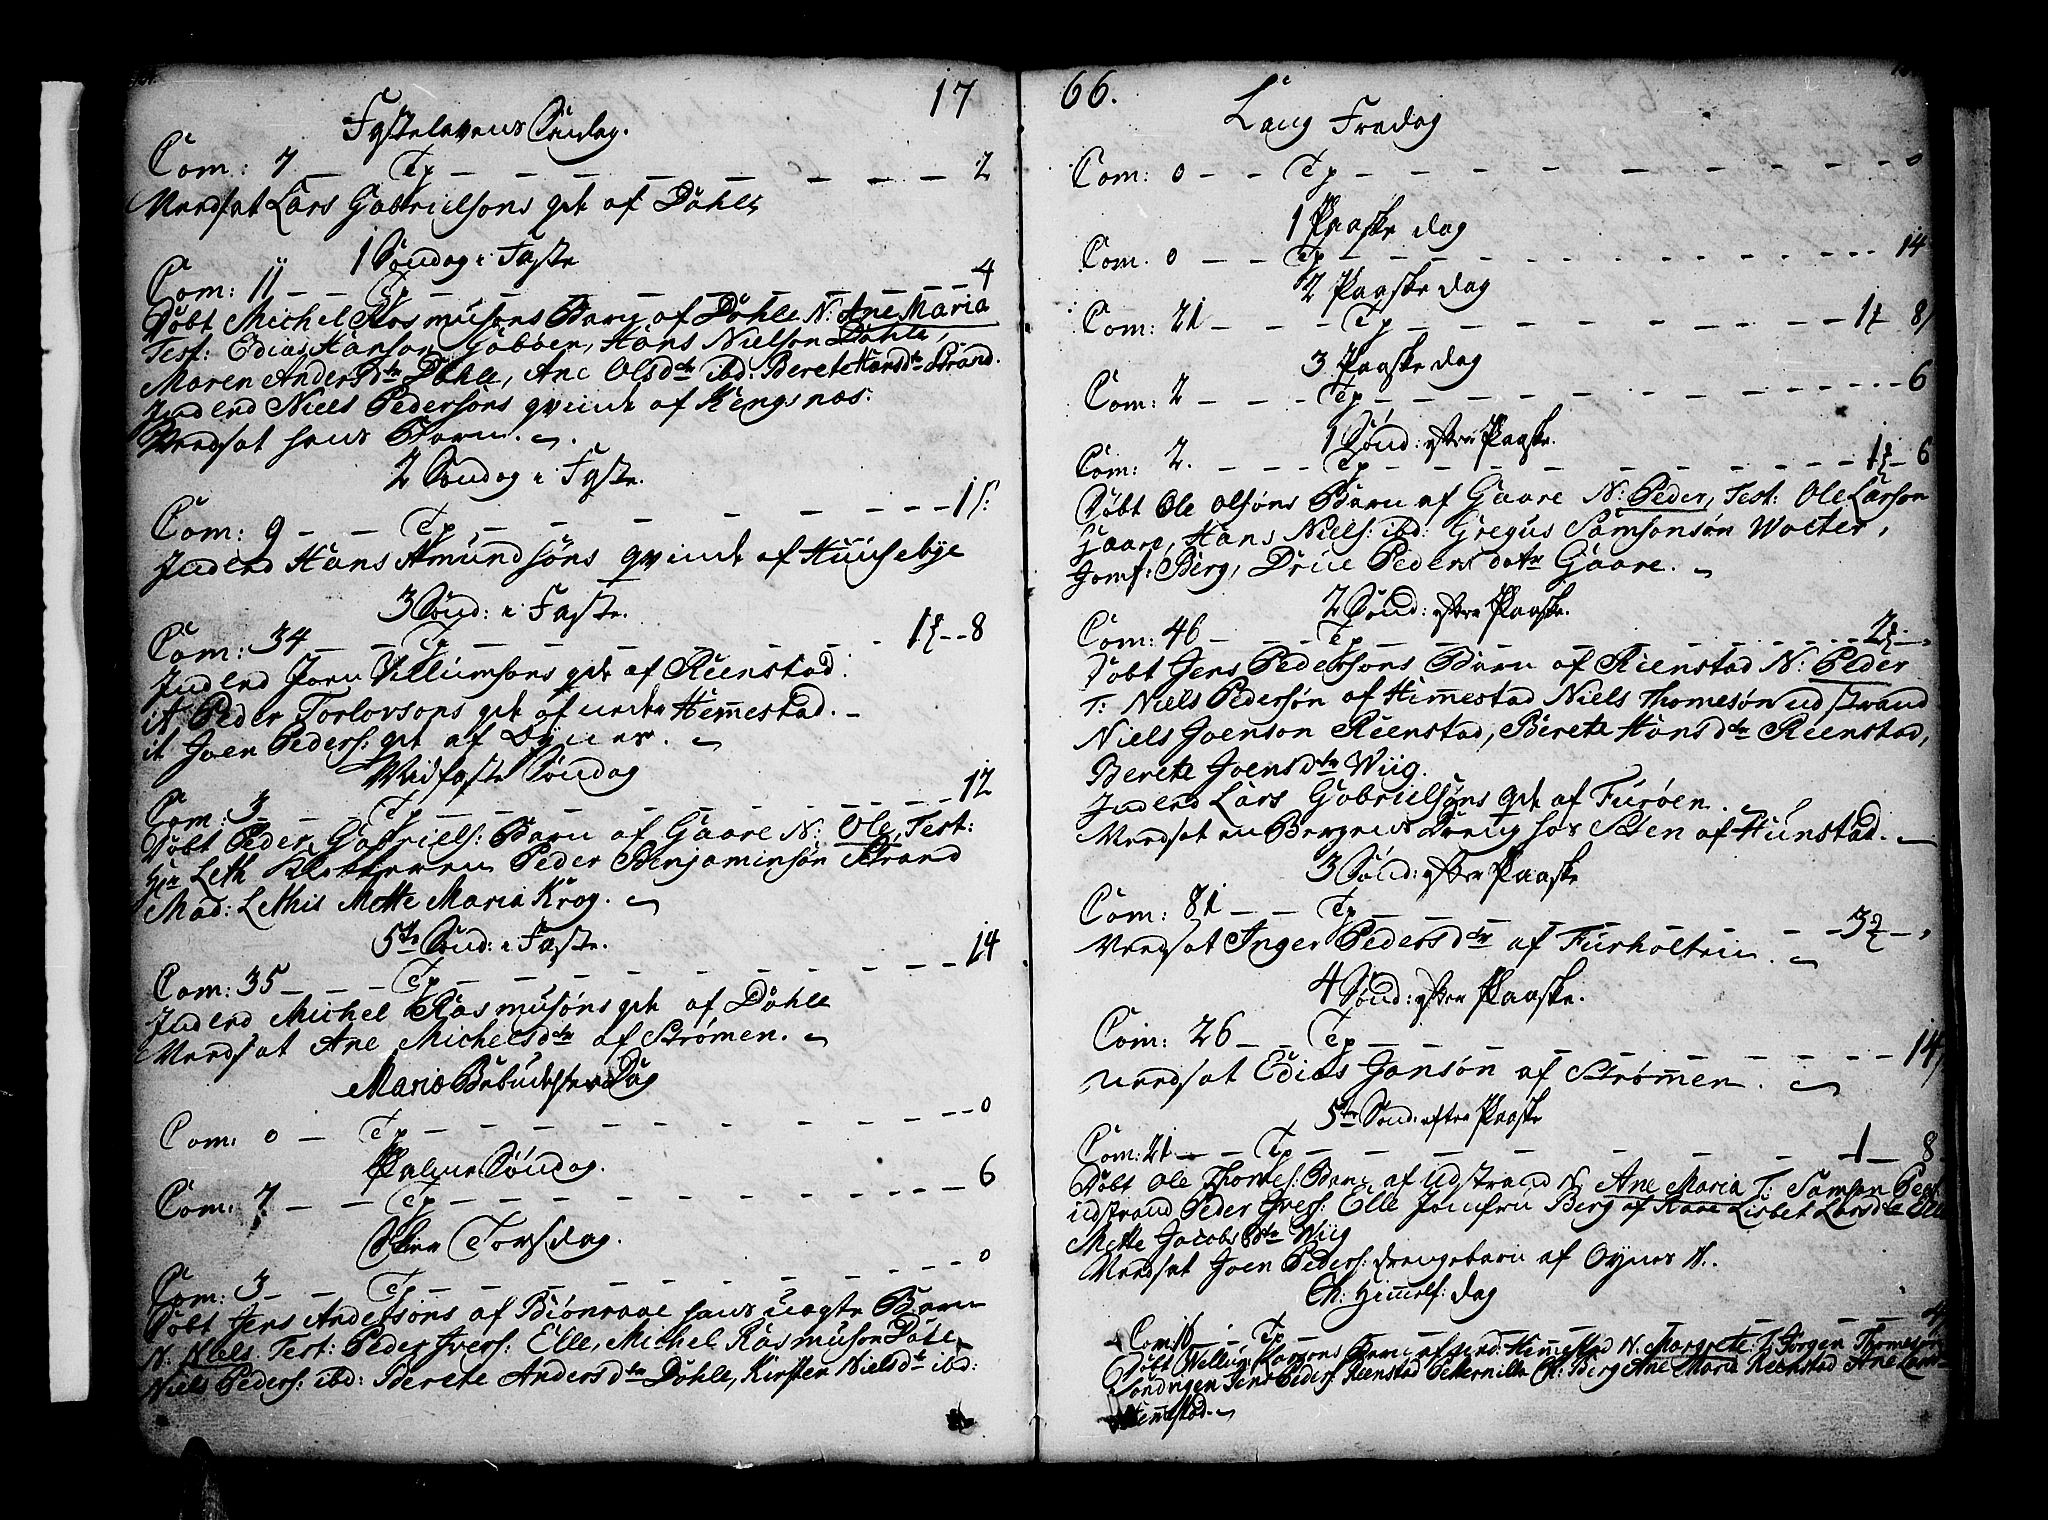 17
Fastelavens Søndag.
Com: 7 — Tp — — — — — — — 2
Vendsat Lars Gabrielsøns qd af Døhle
1 Søndag i Faste
Com: 11 — — Tp — — — — — — 4
Døbt Michel Rasmusøns Barn af Døhle N: Ane Maria
Test: Edias Hanson Gaboen, Hans Nielson Døhle,
Maren Andersdtr Døhle, Ane Olsdtr ibd: Berete Hansdtr Strand.
Indlend Niels Pedersøns qvinde af Kengsnæs:
Vendsat hans Barn.
2 Søndag i Faste.
Com: 9 — — Tp — — — — — — 1
Indlend Hans Amundsøns qvinde af Huusebye
3 Sønd: i Faste.
Com: 34 — — Tp — — — — — 1 — 8
Indlend Joen Villumsøns qd af Reenstad.
it Peder Torlovsøns qd af under Hemmestad.
it Joen Peders: qd af Oynes.
Midfaste Søndag
Com: 3 — — Tp — — — — — — 12
Døbt Peder Gabriels: Barn af Gaare N: Ole, Test:
Hr Leth Klokkeren Peder Benjaminsøn Strand
Mad: Lethis Mette Maria Krog.
5te Sønd: i Faste.
Com: 35 — — Tp — — — — — — 14
Indlend Michel Rasmusøns qd af Døhle
Vendsat Ane Michelsdtr af Strømen.
Mariæ Bebudelses Dag
Com: 0 — Tp — — — — — — 0
Palme Søndag.
Com: 7 — — Tp — — — — — — 6
Skier Torsdag.
Com: 3 — — Tp — — — — — — 0
Døbt Jens Andersøns af Biønraae hans uægte Barn
N: Niels Test: Peder Ivers: Elle, Michel Rasmuson Døle
Niels Peders: ibd: Berete Andersdtr Døhle, Kirsten Nielsdtr ibd:
66.
Lang Fredag
Com: 0 — — Tp — — — — — — 0
1 Paaske dag
Com. 0 — — Tp — — — — — — 14
2 Paaske dag
Com: 21 — — Tp — — — — — 1 — 8
3 Paaske dag
Com: 2 — — Tp — — — — — — 6
1 Sønd: efter Paaske.
Com: 2. — — Tp — — — — — 1 — 6
Døbt Ole Olsøns Barn af Gaare N: Peder, Test: Ole Larson
Gaare, Hans Niels: ibd: Gregus Samsonsøn Wolter,
Jomf: Berg, Drue Pedersdotr Gaare.
2 Sønd: efter Paaske.
Com: 46 — — Tp — — — — — 2 —
Døbt Jens Pedersøns Barn af Rienstad N: Peder
T: Niels Pedersøn af Himmestad Niels Thomesøn udstrand
Niels Joenson Reenstad, Berete Hansdtr Reenstad,
Berete Joensdtr Wiig.
Indlend Lars Gabrielsøns qd af Furøen.
Vendsat en Bergens Dreng hos Sten af Hunstad.
3 Sønd: efter Paaske
Com: 81 — — Tp — — — — — 3 —
Vendsat Inger Pedersdtr af Furholten.
4 Sønd: efter Paaske.
Com: 26 — — Tp — — — — — — 14
Vendsat Edias Jansøn af Strømmen.
5te Sønd: efter Paaske
Com: 21 — Tp — — — — — 1 — 8
Døbt Ole Thomes: Barn af Udstrand N. Ane Maria T: Samson Peds
udstrand Peder Ivers: Elle Jomfru Berg af Raae Lisbet Larsdtr Elle
Mette Jacobsdtr Wiig
Vendsat Joen Peders: drengebarn af Oynes N.
Ch: Himelf: dag
Com: — — Tp — — — — — 4
Døbt Wellum Larsøns Barn af Hemmestad N. Margrete: T: Jørgen Thomesøn
Sandvigen Jens Peders: Reenstad Pekernilla Ch: Berg Ane Maria Reenstad Ane
Hemmestad.